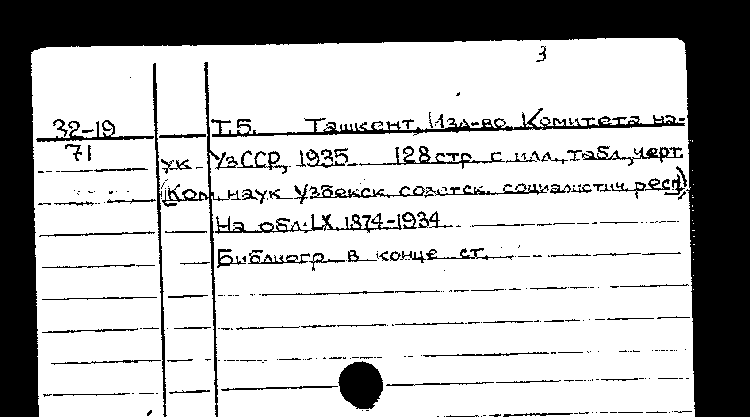 3
32-19 Т.5. Ташкент, Изд-во Комитета на-
71 ук УзССР, 1935 128 стр. с илл., табл., черт.
(Ком. наук Узбекск. советск. социалистич. респ)
На обл: LX. 1874-1934
Библиогр. в конце ст.